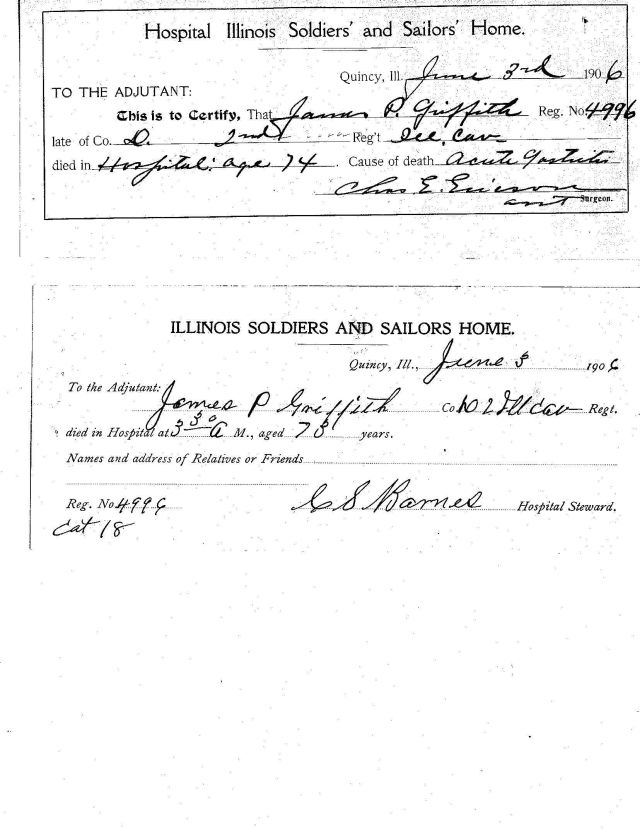 Hospital Illinois Soldiers' and Sailors' Home.
Quincy, Ill. June 3rd 1906
TO THE ADJUTANT:
This is to Certify, That James P. Griffith Reg. No. 4996
late of Co. D. 2nd Reg't Ill. Cav
died in Hospital: age 74 Cause of death Acute Gastritis
Chas E. Ericson
Surgeon.
ILLINOIS SOLDIERS AND SAILORS HOME.
Quincy, Ill., June 3 1906
To the Adjutant:
James P Griffith Co D 2 Ill Cav Regt.
died in Hospital at 3 30 A M., aged 73 years.
Names and address of Relatives or Friends
Reg. No 4996 C S Barnes Hospital Steward.
Cat 18